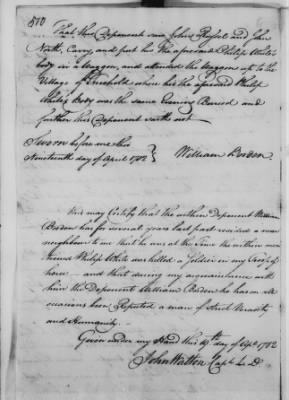 510
That this Deponent saw John Russel and John
North, Carry, and put her the aforesaid Philip White's
body in a Waggon, and attended the Waggon into the
Village of Freehold where his the aforesaid Philip
White's Body was the same Evening Buried and
further this Deponent saith not
Sworn before me this
Nineteenth day of April 1782 } William Borden
This may Certify that the within Deponent William
Borden has for several years last past resided a near
neighbour to me that he was at the Time the within men
tioned Philip White was killed a Soldier in my Troop of
horse and that during my acquaintance with
him the Deponent William Borden he has on all
occasions been Reputed a man of strict Veracity
and Humanity.
Given under my Hand this 19th day of Apl. 1782
John Walton Capt. L. D.